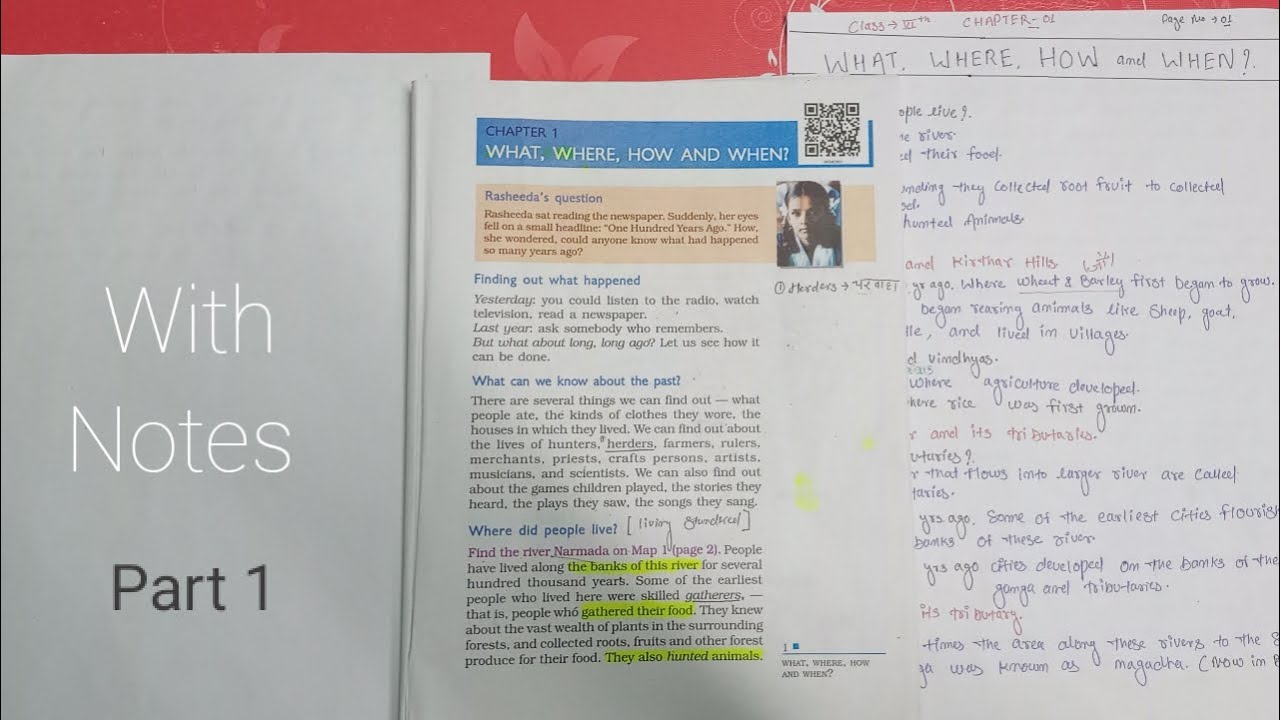 With
Notes
Part 1
CHAPTER 1
WHAT, WHERE, HOW AND WHEN?
Rasheeda's question
Rasheeda sat reading the newspaper. Suddenly, her eyes
fell on a small headline: “One Hundred Years Ago.” How,
she wondered, could anyone know what had happened
so many years ago?
Finding out what happened
Yesterday: you could listen to the radio, watch
television, read a newspaper.
Last year: ask somebody who remembers.
But what about long, long ago? Let us see how it
can be done.
What can we know about the past?
There are several things we can find out — what
people ate, the kinds of clothes they wore, the
houses in which they lived. We can find out about
the lives of hunters, herders, farmers, rulers,
merchants, priests, crafts persons, artists,
musicians, and scientists. We can also find out
about the games children played, the stories they
heard, the plays they saw, the songs they sang.
Where did people live? [living
Find the river Narmada on Map 1 (page 2). People
have lived along the banks of this river for several
hundred thousand years. Some of the earliest
people who lived here were skilled gatherers, —
that is, people who gathered their food. They knew
about the vast wealth of plants in the surrounding
forests, and collected roots, fruits and other forest
produce for their food. They also hunted animals.
① Herders →
1
WHAT, WHERE, HOW
AND WHEN?
Class → VIth CHAPTER - 01 Page No → 01
WHAT, WHERE, HOW and WHEN?
ople live?
river
their food.
they collected root fruit to collected
hunted Animals.
and Kirthar Hills
yr ago. Where Wheat & Barley first began to grow.
began rearing animals like Sheep, goat,
and lived in villages.
Vindhyas.
where agriculture developed.
here rice was first grown.
r and its tributaries.
utaries?
r that flows into larger river are called
taries.
yrs ago. Some of the earliest cities flourish
banks of these river
yrs ago cities developed on the banks of the
ganga and Tributaries.
its tributary.
times the area along these rivers to the S
ga was known as magadha. (Now in